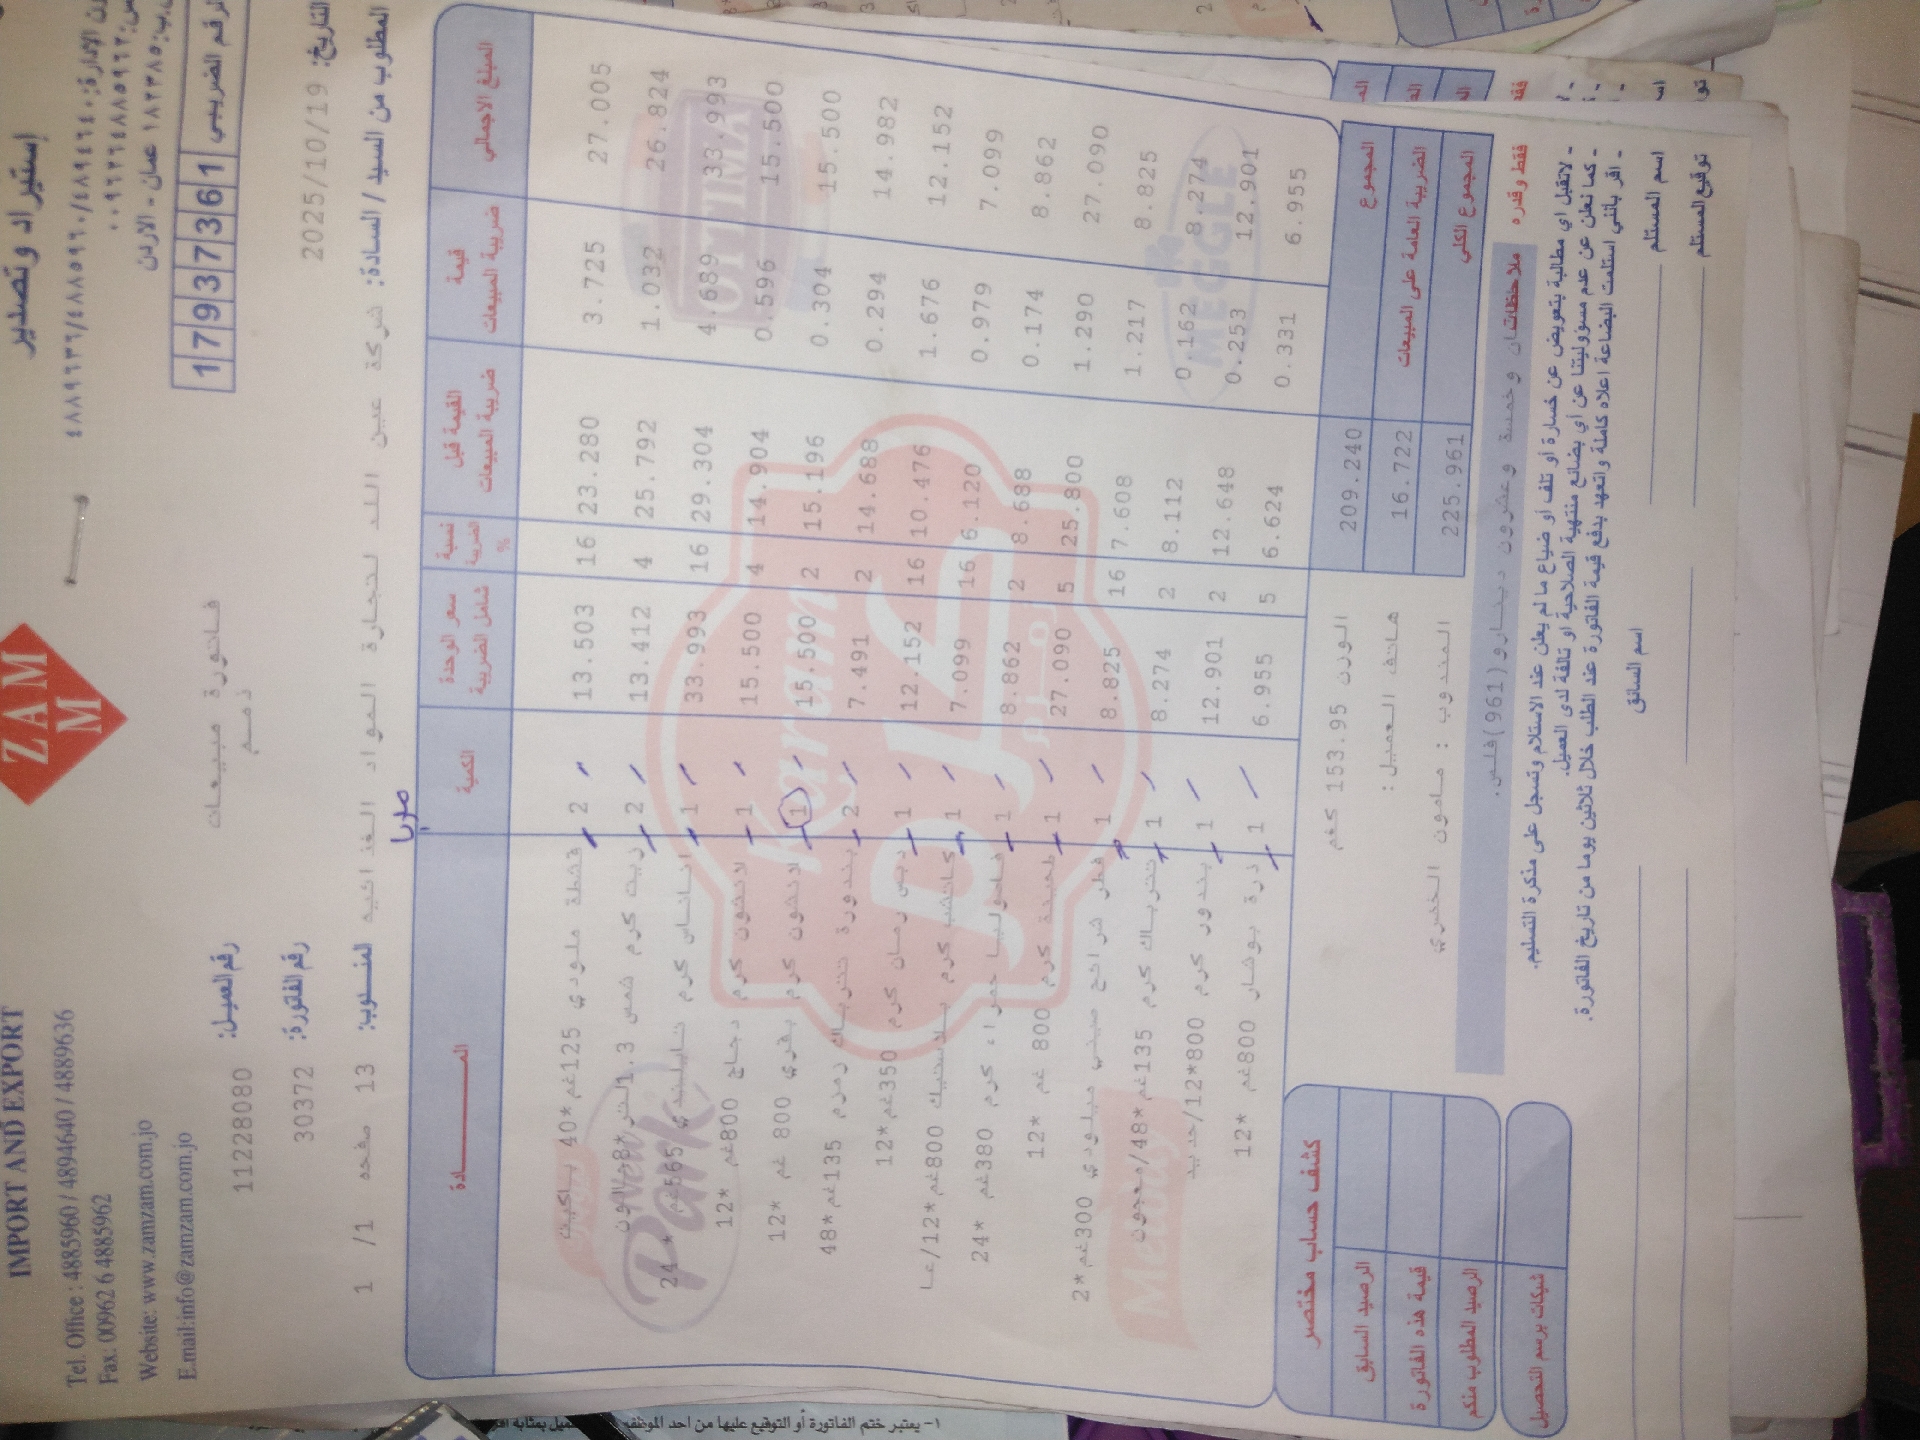 إستيراد وتصدير
IMPORT AND EXPORT
ZAM
M
Tel. Office : 4885960 / 4894640 / 4889636
Fax: 00962 6 4885962
Website: www.zamzam.com.jo
E.mail:info@zamzam.com.jo
الرقم الضريبي 1 7 9 3 7 3 6 1
فاتورة مبيعات
ذمم
رقم العميل: 11228080
رقم الفاتورة: 30372
التاريخ: 2025/10/19
المطلوب من السيد / السادة: شركة عين اللد لتجارة المواد الغذائيه
المندوب: 13 صفحه 1/ 1
المــادة الكمية سعر الوحدة شامل الضريبة نسبة الضريبة % القيمة قبل ضريبة المبيعات قيمة ضريبة المبيعات المبلغ الاجمالي
قشطة ملودي 125غم*40 باكيت 2 13.503 16 23.280 3.725 27.005
زيت كرم شمس 1.3لتر*8جالون 2 13.412 4 25.792 1.032 26.824
اناناس كرم تايلندي 565غم*24 1 33.993 16 29.304 4.689 33.993
لانشون كرم دجاج 800غم *12 1 15.500 4 14.904 0.596 15.500
لانشون كرم بقري 800 غم *12 1 15.500 2 15.196 0.304 15.500
بندورة تتراباك زمزم 135غم*48 2 7.491 2 14.688 0.294 14.982
دبس رمان كرم 350غم*12 1 12.152 16 10.476 1.676 12.152
كاتشب كرم بلاستيك 800غم*12/عا 1 7.099 16 6.120 0.979 7.099
فاصوليا حمراء كرم 380غم *24 1 8.862 2 8.688 0.174 8.862
طحينة كرم 800 غم *12 1 27.090 5 25.800 1.290 27.090
فطر شرائح صيني ميلودي 300غم*2 1 8.825 16 7.608 1.217 8.825
تتراباك كرم 135غم*48/معجون 1 8.274 2 8.112 0.162 8.274
بندور كرم 800*12/حديد 1 12.901 2 12.648 0.253 12.901
ذرة بوشار 800غم *12 1 6.955 5 6.624 0.331 6.955
الوزن 153.95 كغم
هاتف العميل:
المندوب : مامون الخضري
المجموع 209.240
الضريبة العامة على المبيعات 16.722
المجموع الكلي 225.961
فقط وقدره
ملاحظات
وخمسة وعشرون دينارو(961)فلس.
- لاتقبل اي مطالبة بتعويض عن خسارة أو تلف أو ضياع ما لم يعلن عند الاستلام وتسجل على مذكرة التسليم.
- كما نعلن عن عدم مسؤوليتنا عن أي بضائع منتهية الصلاحية أو تالفة لدى العميل.
- اقر بأنني استلمت البضاعة اعلاه كاملة واتعهد بدفع قيمة الفاتورة عند الطلب خلال ثلاثين يوما من تاريخ الفاتورة.
اسم المستلم
اسم السائق
توقيع المستلم
كشف حساب مختصر
الرصيد السابق
قيمة هذه الفاتورة
الرصيد المطلوب منكم
شيكات برسم التحصيل
Karam
OPTIMA
MEGGLE
New Park
Melody